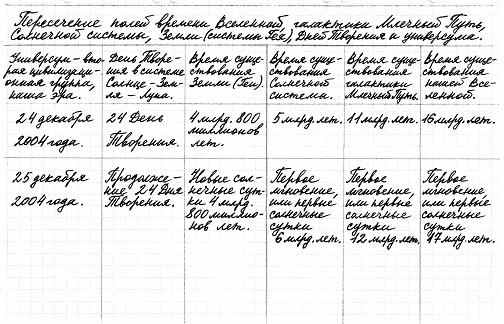 Пересечение полей времени Вселенной, галактики Млечный Путь,
Солнечной системы, Земли (системы Гея), Дней Творения и универсума.
Универсум – вто-
рая цивилизаци-
онная группа,
наша эра.
День Творе-
ния в системе
Солнце – Зем-
ля – Луна.
Время суще-
ствования
Земли (Геи).
Время суще-
ствования
Солнечной
системы.
Время суще-
ствования
галактики
Млечный Путь.
Время суще-
ствования
нашей Все-
ленной.
24 декабря
2004 года.
24 День
Творения.
4 млрд. 800
миллионов
лет.
5 млрд. лет.
11 млрд. лет.
16 млрд. лет.
25 декабря
2004 года.
Продолже-
ние 24 Дня
Творения.
Новые сол-
нечные сут-
ки 4 млрд.
800 миллио-
нов лет.
Первое
мгновение,
или первые
солнечные
сутки
6 млрд. лет.
Первое
мгновение,
или первые
солнечные
сутки
12 млрд. лет.
Первое
мгновение,
или первые
солнечные
сутки
17 млрд. лет.